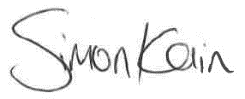 Simon Kain